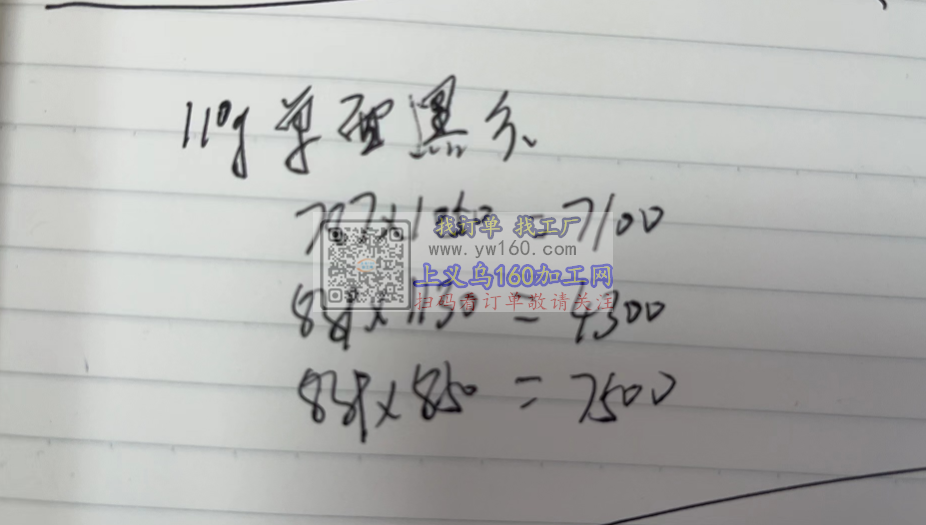 110g单面黑卡
787×1060=7100
889×1130=4300
889×850=7500
找订单 找工厂
www.yw160.com
上义乌160加工网
扫码看订单敬请关注